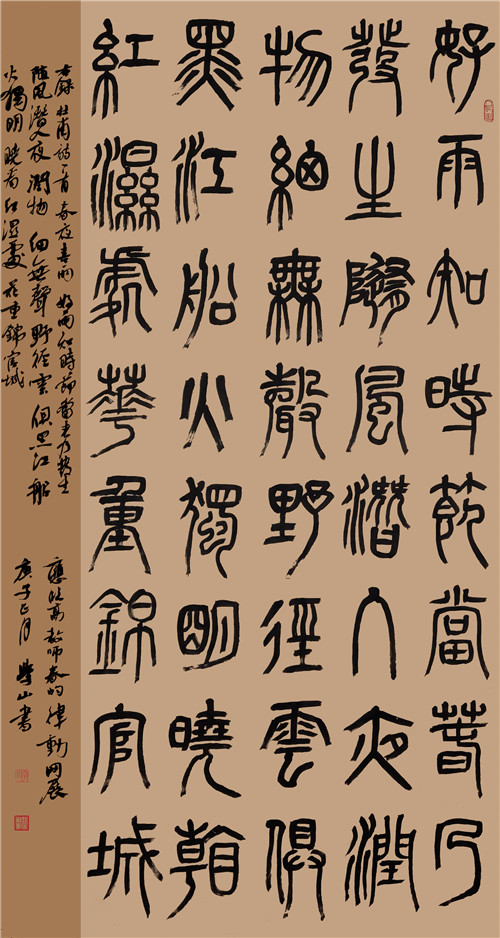 好雨知時節當春乃
發生隨風潛入夜潤
物細無聲野徑雲俱
黑江船火獨明曉看
紅濕處華重錦官城
右錄杜甫詩一首春夜喜雨 好雨知時節當春乃發生
隨風潛入夜潤物細無聲野徑雲俱黑江船
火獨明曉看紅濕處花重錦官城
應高教師春的律動网展
庚子正月 學山書